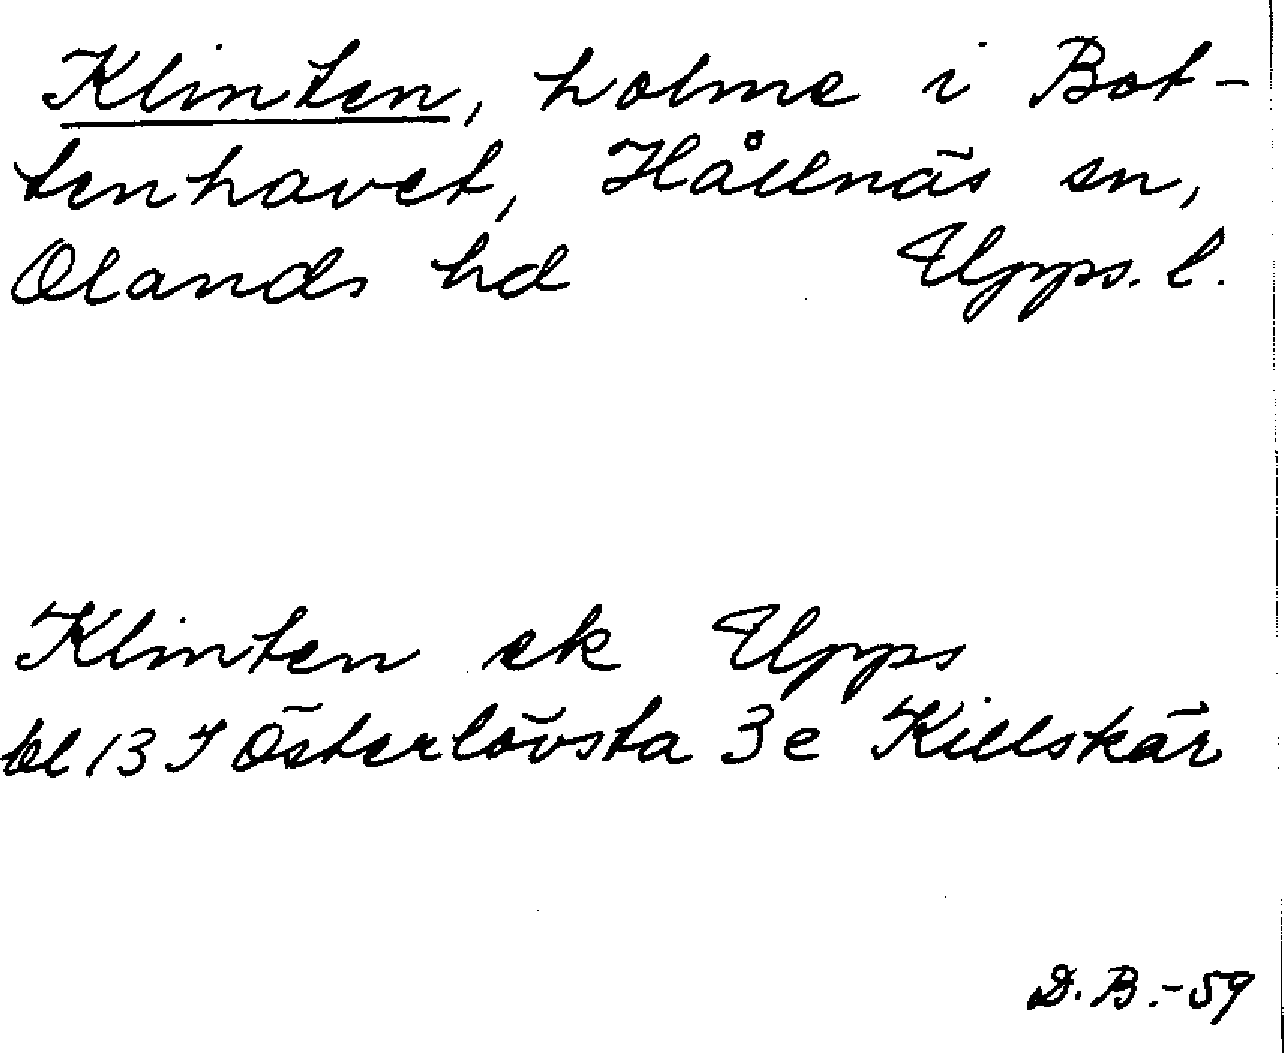 Klinten, holme i Bot-
tenhavet, Hållnäs sn,
Olands hd Upps. l.
Klinten ek Upps
bl 13 I Österlövsta 3e Killskär
D. B. - 59